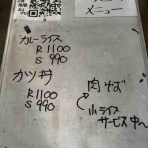 メニュー
カレーライス
R 1100
S 990
カツ丼
R 1100
S 990
肉そば
小ライス
サービス中